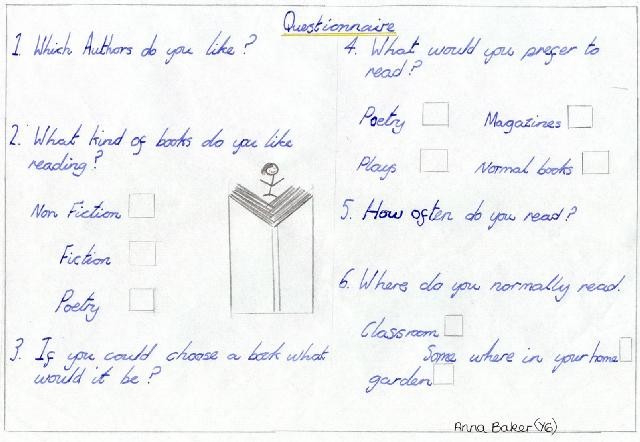 Questionnaire
1. Which Authors do you like?
2. What kind of books do you like
reading?
Non Fiction
Fiction
Poetry
3. If you could choose a book what
would it be?
4. What would you prefer to
read?
Poetry Magazines
Plays Normal books
5. How often do you read?
6. Where do you normally read.
Classroom
Some where in your home
garden
Anna Baker (Y6)